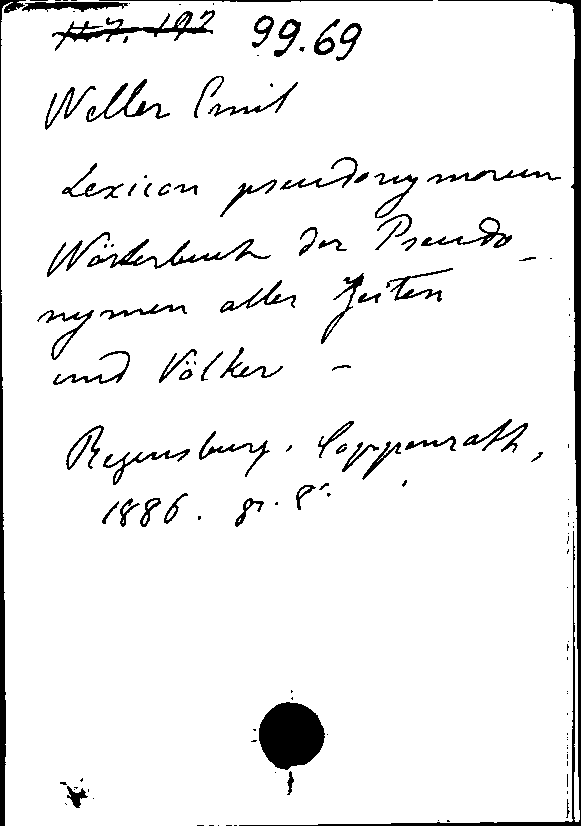 99.69
Weller Emil
Lexicon pseudonymorum.
Wörterbuch der Pseudo-
nymen aller Zeiten
und Völker –
Regensburg. Coppenrath,
1886. gr. 8°.